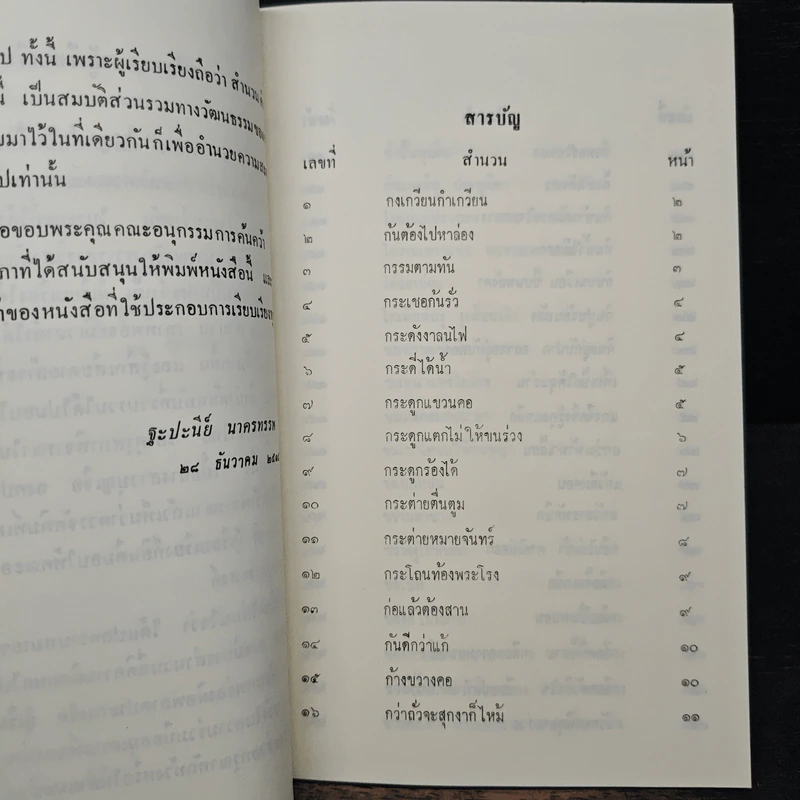 ป ทั้งนี้ เพราะผู้เรียบเรียงถือว่า สำนวน
นี้ เป็นสมบัติส่วนรวมทางวัฒนธรรม
มาไว้ในที่เดียวกันก็เพื่ออำนวยความ
ปเท่านั้น
อขอบพระคุณคณะอนุกรรมการค้นคว้า
ภาที่ได้สนับสนุนให้พิมพ์หนังสือนี้
ของหนังสือที่ใช้ประกอบการเรียบเรียง
ฐะปะนีย์ นาครทรรพ
๒๘ ธันวาคม
สารบัญ
เลขที่ สำนวน หน้า
๑ กงเกวียนกำเกวียน ๒
๒ กันต้องไปหาล่อง ๒
๓ กรรมตามทัน ๓
๔ กระเชอก้นรั่ว ๔
๕ กระดังงาลนไฟ ๔
๖ กระดี่ได้น้ำ ๕
๗ กระดูกแขวนคอ ๕
๘ กระดูกแตกไม่ให้ขนร่วง ๖
๙ กระดูกร้องได้ ๗
๑๐ กระต่ายตื่นตูม ๗
๑๑ กระต่ายหมายจันทร์ ๘
๑๒ กระโถนท้องพระโรง ๙
๑๓ ก่อแล้วต้องสาน ๙
๑๔ กันดีกว่าแก้ ๑๐
๑๕ ก้างขวางคอ ๑๐
๑๖ กว่าถั่วจะสุกงาก็ไหม้ ๑๑